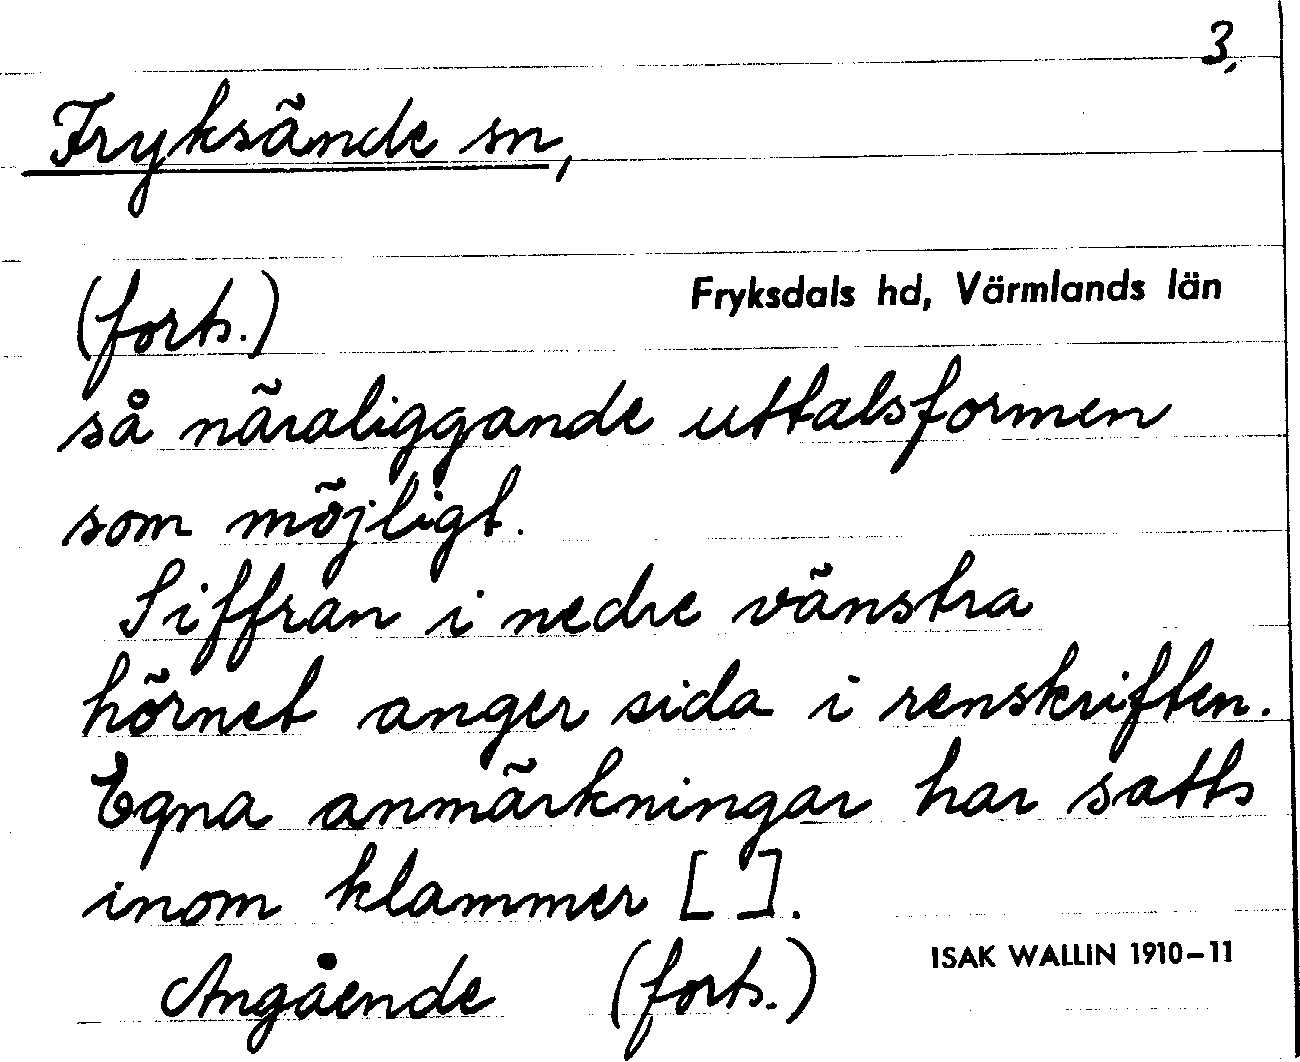 3.
Fryksände sn,
Fryksdals hd, Värmlands län
(forts.)
så näraliggande uttalsformen
som möjligt.
Siffran i nedre vänstra
hörnet anger sida i renskriften.
Egna anmärkningar har satts
inom klammer [ ].
ISAK WALLIN 1910–11
Angående (forts.)